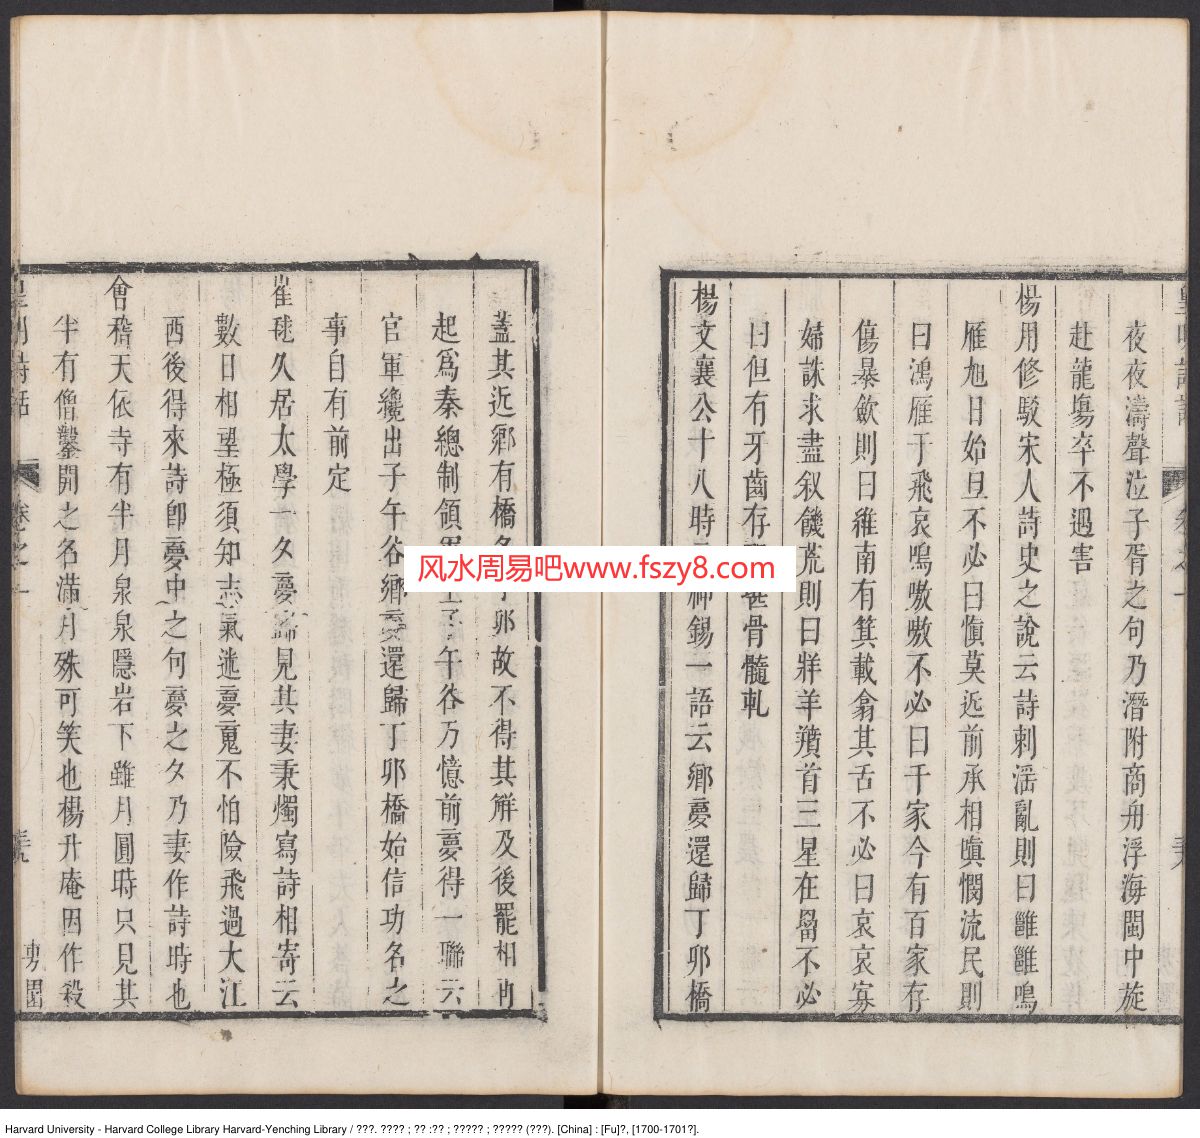 皇明詩話
卷之一
夜夜濤聲泣子胥之句乃潛附商舟浮海閩中旋
赴龍塲卒不遇害
楊用修駁宋人詩史之說云詩刺滛亂則曰雝雝鳴
雁旭日始旦不必曰愼莫近前丞相嗔憫流民則
曰鴻雁于飛哀鳴嗷嗷不必曰千家今有百家存
傷暴斂則曰維南有箕載翕其舌不必曰哀哀寡
婦誅求盡叙饑荒則曰牂羊羵首三星在罶不必
曰但有牙齒存 骨髓乹
楊文襄公十八時 神錫一語云鄉夢還歸丁卯橋
蓋其近鄉有橋名 卯故不得其解及後罷相再
起爲秦總制領軍 子午谷乃憶前夢得一聯云
官軍纔出子午谷鄉夢還歸丁卯橋始信功名之
事自有前定
崔 久居太學一夕夢歸見其妻秉燭寫詩相寄云
數日相望極須知志氣迷夢魂不怕險飛過大江
西後得來詩卽夢中之句夢之夕乃妻作詩時也
會稽天依寺有半月泉泉隱岩下雖月圓時只見其
半有僧鑿開之名滿月殊可笑也楊升庵因作殺
皇明詩話
卷之一
風水周易吧www.fszy8.com
Harvard University - Harvard College Library Harvard-Yenching Library / ???. ???? ; ?? :?? ; ????? ; ????? (???). [China] : [Fu]?, [1700-1701?].